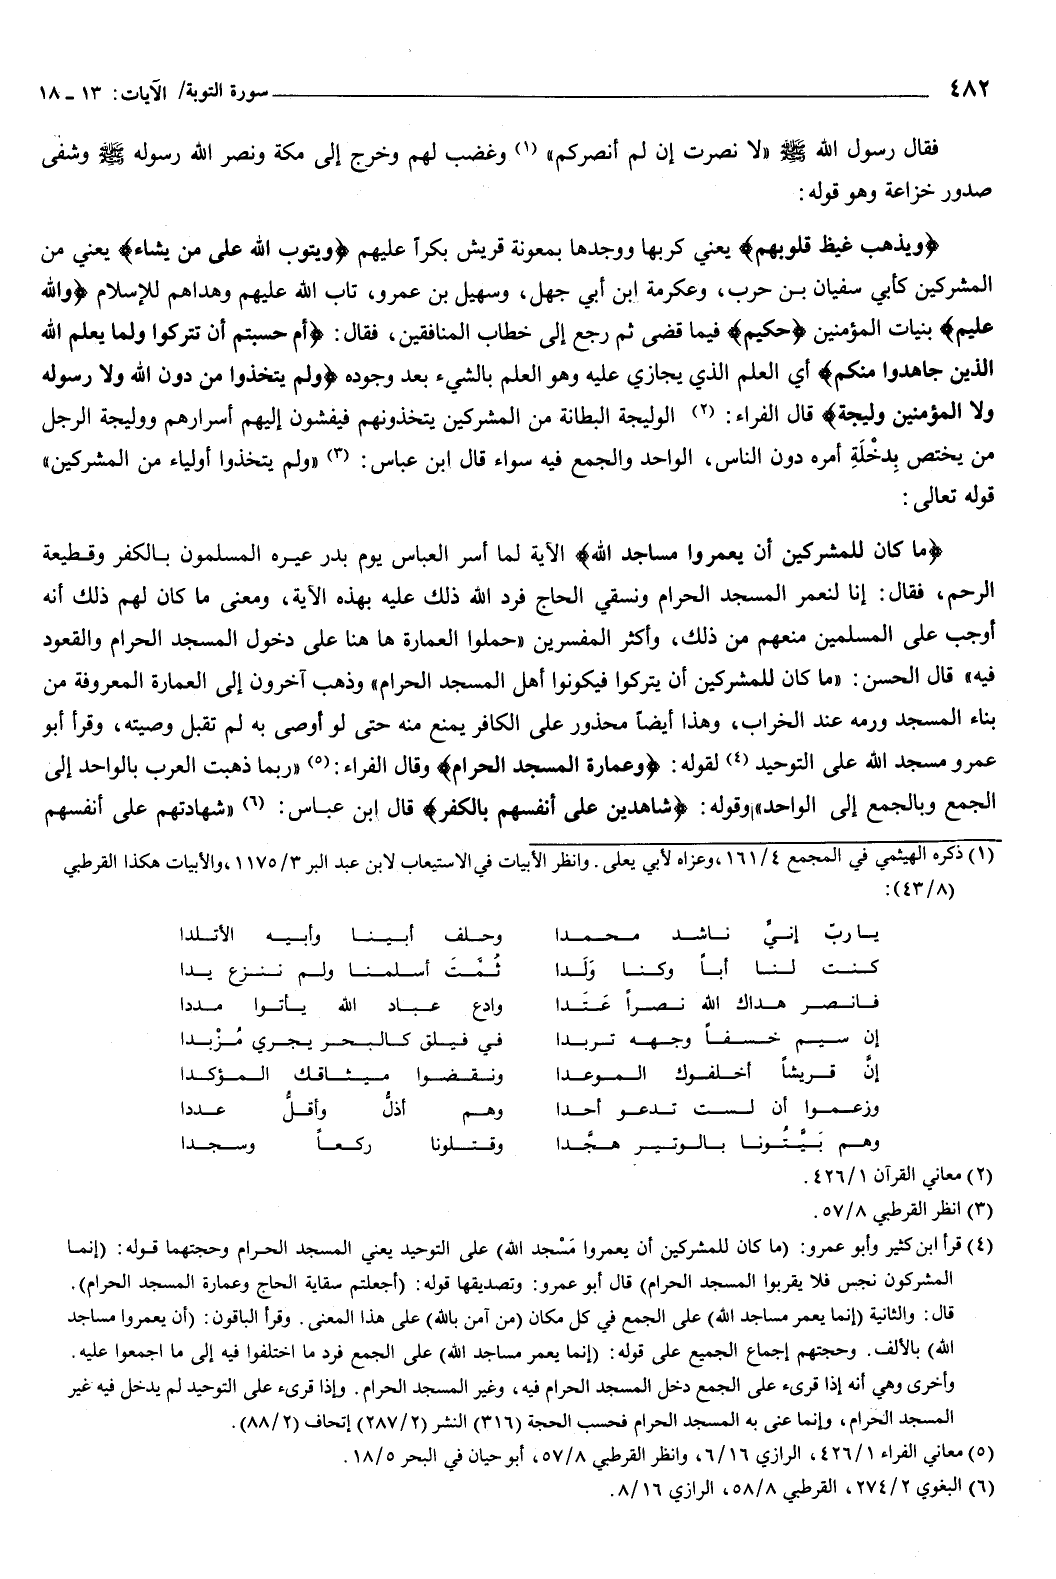 ٤٨٢ سورة التوبة/ الآيات: ١٣ ـ ١٨
فقال رسول الله ﷺ «لا نصرت إن لم أنصركم» (١) وغضب لهم وخرج إلى مكة ونصر الله رسوله ﷺ وشفى
صدور خزاعة وهو قوله:
﴿ويذهب غيظ قلوبهم﴾ يعني كربها ووجدها بمعونة قريش بكراً عليهم ﴿ويتوب الله على من يشاء﴾ يعني من
المشركين كأبي سفيان بن حرب، وعكرمة ابن أبي جهل، وسهيل بن عمرو، تاب الله عليهم وهداهم للإسلام ﴿والله
عليم﴾ بنيات المؤمنين ﴿حكيم﴾ فيما قضى ثم رجع إلى خطاب المنافقين، فقال: ﴿أم حسبتم أن تتركوا ولما يعلم الله
الذين جاهدوا منكم﴾ أي العلم الذي يجازي عليه وهو العلم بالشيء بعد وجوده ﴿ولم يتخذوا من دون الله ولا رسوله
ولا المؤمنين وليجة﴾ قال الفراء: (٢) الوليجة البطانة من المشركين يتخذونهم فيفشون إليهم أسرارهم ووليجة الرجل
من يختص بِدخْلَةِ أمره دون الناس، الواحد والجمع فيه سواء قال ابن عباس: (٣) «ولم يتخذوا أولياء من المشركين»
قوله تعالى:
﴿ما كان للمشركين أن يعمروا مساجد الله﴾ الآية لما أسر العباس يوم بدر عيره المسلمون بالكفر وقطيعة
الرحم، فقال: إنا لنعمر المسجد الحرام ونسقي الحاج فرد الله ذلك عليه بهذه الآية، ومعنى ما كان لهم ذلك أنه
أوجب على المسلمين منعهم من ذلك، وأكثر المفسرين «حملوا العمارة ها هنا على دخول المسجد الحرام والقعود
فيه» قال الحسن: «ما كان للمشركين أن يتركوا فيكونوا أهل المسجد الحرام» وذهب آخرون إلى العمارة المعروفة من
بناء المسجد ورمه عند الخراب، وهذا أيضاً محذور على الكافر يمنع منه حتى لو أوصى به لم تقبل وصيته، وقرأ أبو
عمرو مسجد الله على التوحيد (٤) لقوله: ﴿وعمارة المسجد الحرام﴾ وقال الفراء:(٥) «ربما ذهبت العرب بالواحد إلى
الجمع وبالجمع إلى الواحد» وقوله: ﴿شاهدين على أنفسهم بالكفر﴾ قال ابن عباس: (٦) «شهادتهم على أنفسهم
(١) ذكره الهيثمي في المجمع ١٦١/٤، وعزاه لأبي يعلى. وانظر الأبيات في الاستيعاب لابن عبد البر ١١٧٥/٣، والأبيات هكذا القرطبي
(٤٣/٨):
يا ربّ إنيَّ ناشد محمدا وحلف أبينا وأبيه الأتلدا
كنت لنا أباً وكنا وَلَدا ثُمَّتَ أسلمنا ولم ننزع يدا
فانصر هداك الله نصراً عَتَدا وادع عباد الله يأتوا مددا
إن سيم خسفاً وجهه تربدا في فيلق كالبحر يجري مُزْبدا
إنَّ قريشاً أخلفوك الموعدا ونقضوا ميثاقك المؤكدا
وزعموا أن لست تدعو أحدا وهم أذلُّ وأقلُّ عددا
وهم بَيَّتُونا بالوتير هجَّدا وقتلونا ركعاً وسجدا
(٢) معاني القرآن ٤٢٦/١.
(٣) انظر القرطبي ٥٧/٨.
(٤) قرأ ابن كثير وأبو عمرو: (ما كان للمشركين أن يعمروا مَسْجد الله) على التوحيد يعني المسجد الحرام وحجتهما قوله: (إنما
المشركون نجس فلا يقربوا المسجد الحرام) قال أبو عمرو: وتصديقها قوله: (أجعلتم سقاية الحاج وعمارة المسجد الحرام).
قال: والثانية (إنما يعمر مساجد الله) على الجمع في كل مكان (من آمن بالله) على هذا المعنى. وقرأ الباقون: (أن يعمروا مساجد
الله) بالألف. وحجتهم إجماع الجميع على قوله: (إنما يعمر مساجد الله) على الجمع فرد ما اختلفوا فيه إلى ما اجمعوا عليه.
وأخرى وهي أنه إذا قرىء على الجمع دخل المسجد الحرام فيه، وغير المسجد الحرام. وإذا قرىء على التوحيد لم يدخل فيه غير
المسجد الحرام، وإنما عنى به المسجد الحرام فحسب الحجة (٣١٦) النشر (٢٨٧/٢) إتحاف (٨٨/٢).
(٥) معاني الفراء ٤٢٦/١، الرازي ٦/١٦، وانظر القرطبي ٥٧/٨، أبو حيان في البحر ١٨/٥.
(٦) البغوي ٢٧٤/٢، القرطبي ٥٨/٨، الرازي ٨/١٦.